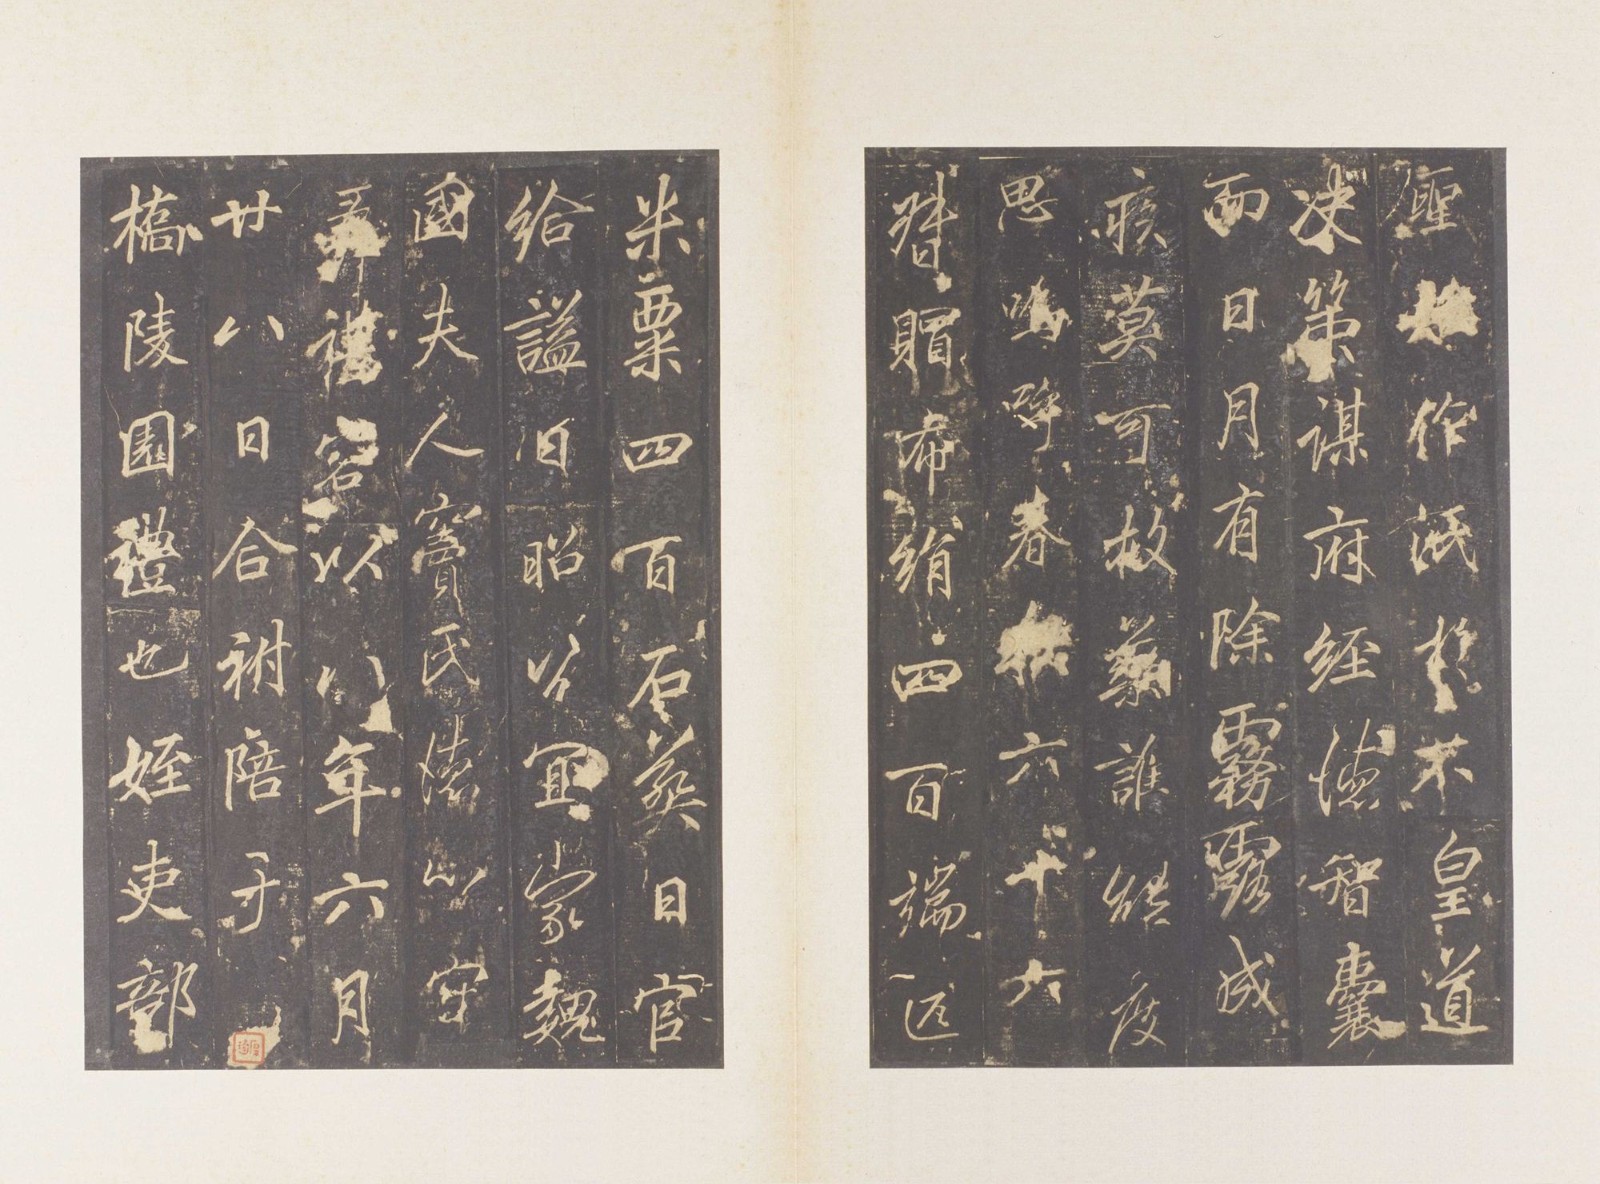 作於不皇道
决策謀府經德智囊
而日月有除霧露成
疾莫可救藥誰能度
思嗚呼春秋六十六
賵布絹四百端匹
米粟四百石葬日官
給謚曰昭公宜家魏
國夫人竇氏德心守
彝禮容以八年六月
廿八日合祔陪于
橋陵園禮也姪吏部